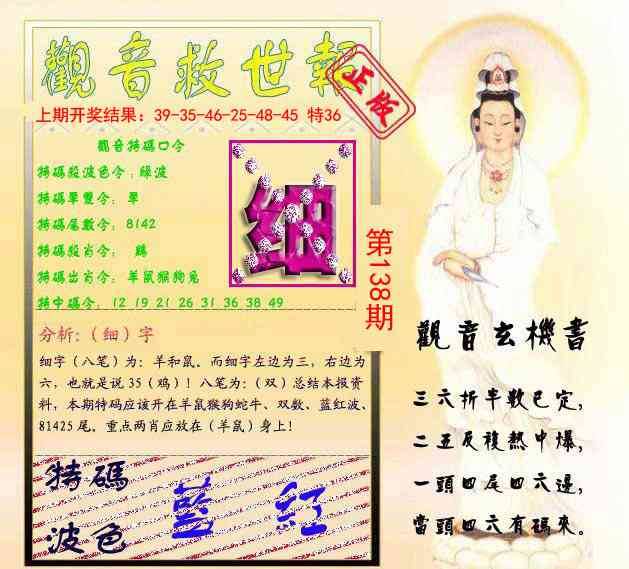 觀音救世報
正版
上期开奖结果：39-35-46-25-48-45 特36
觀音特碼口令
特碼殺波色令：綠波
特碼單雙令： 單
特碼尾數令：8142
特碼殺肖令： 鷄
特碼出肖令：羊鼠猴狗兔
特中碼令：12 19 21 26 31 36 38 49
细
第138期
分析：（细）字
细字（八笔）为：羊和鼠。而细字左边为三，右边为
六，也就是说 35（鸡）！八笔为：（双）总结本报资
料，本期特码应该开在羊鼠猴狗蛇牛、双数、蓝红波、
81425 尾。重点两肖应放在（羊鼠）身上！
特碼
波色
藍 紅
觀音玄機書
三六折半數已定，
二五反複熱中爆，
一頭四尾四六邊，
當頭四六有碼來。